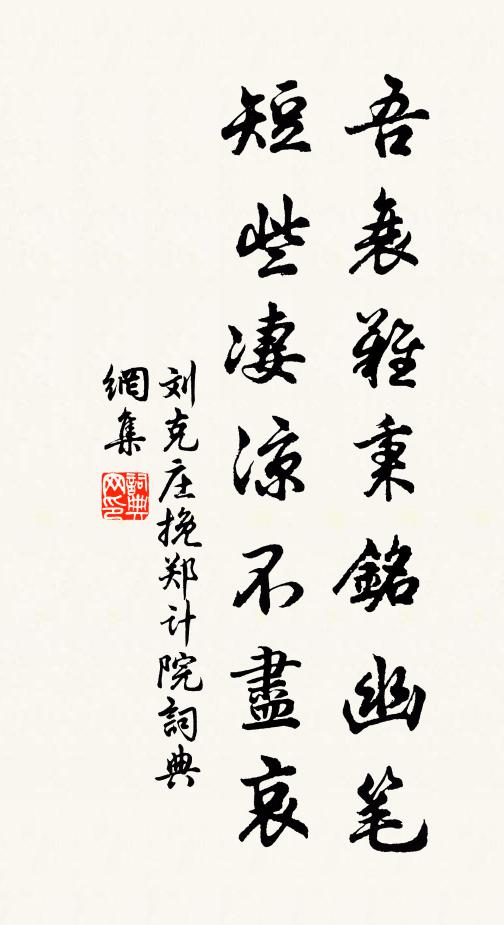 吾衰難秉銘幽笔
短些凄涼不盡哀
刘克庄挽郑计院詞典
網集
詞典
网印